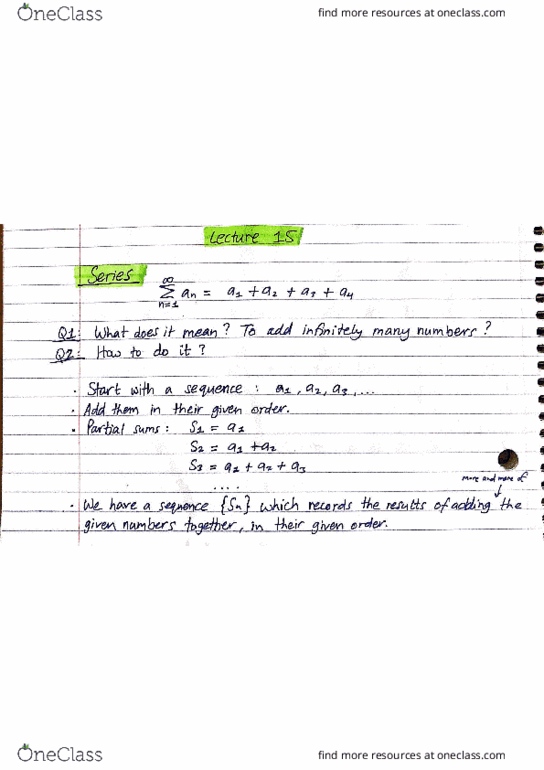 OneClass
find more resources at oneclass.com
Lecture 15
Series
∞
∑ an = a1 + a2 + a3 + a4
n=1
Q1: What does it mean? To add infinitely many numbers?
Q2: How to do it?
· Start with a sequence : a1, a2, a3, ...
· Add them in their given order.
· Partial sums: S1 = a1
S2 = a1 + a2
S3 = a1 + a2 + a3
....
more and more of
· We have a sequence {Sn} which records the results of adding ↓ the
given numbers together, in their given order.
OneClass
find more resources at oneclass.com